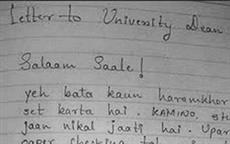 Letter to University Dean
Salaam Saale!
yeh bata kaun haramkhor
set karta hai. KAMINO,
jaan nikal jaati hai. Upar
paper checking